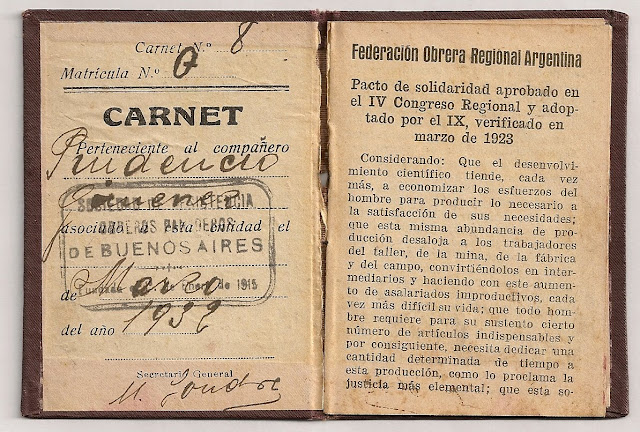 Carnet N.º 8
Matrícula N.º 0
CARNET
Perteneciente al compañero
Prudencio
Gimenez
SOCIEDAD DE RESISTENCIA
OBREROS PANADEROS
asociado a esta entidad el
DE BUENOS AIRES
de Marzo
Fundada Enero de 1915
del año 1932
Secretario General
Federación Obrera Regional Argentina
Pacto de solidaridad aprobado en
el IV Congreso Regional y adop-
tado por el IX, verificado en
marzo de 1923
Considerando: Que el desenvolvi-
miento científico tiende, cada vez
más, a economizar los esfuerzos del
hombre para producir lo necesario a
la satisfacción de sus necesidades;
que esta misma abundancia de pro-
ducción desaloja a los trabajadores
del taller, de la mina, de la fábrica
y del campo, convirtiéndolos en inter-
mediarios y haciendo con este aumen-
to de asalariados improductivos, cada
vez más difícil su vida; que todo hom-
bre requiere para su sustento cierto
número de artículos indispensables y
por consiguiente, necesita dedicar una
cantidad determinada de tiempo a
esta producción, como lo proclama la
justicia más elemental; que esta so-